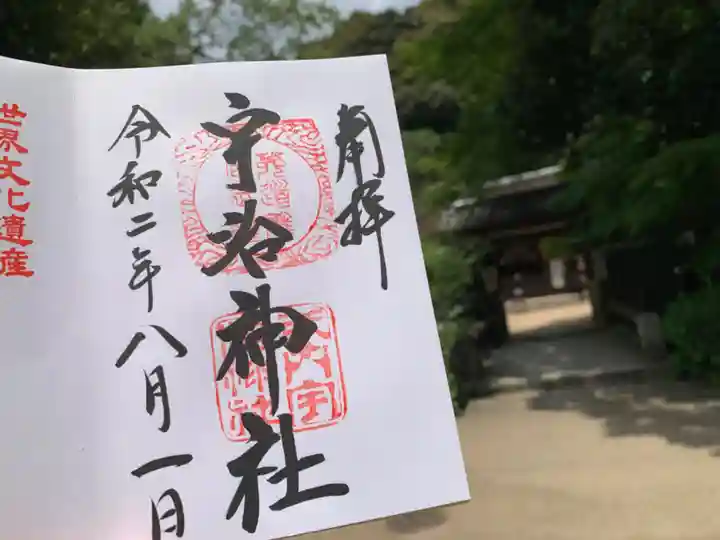 奉拝
宇治神社
令和二年八月一日
世界文化遺産